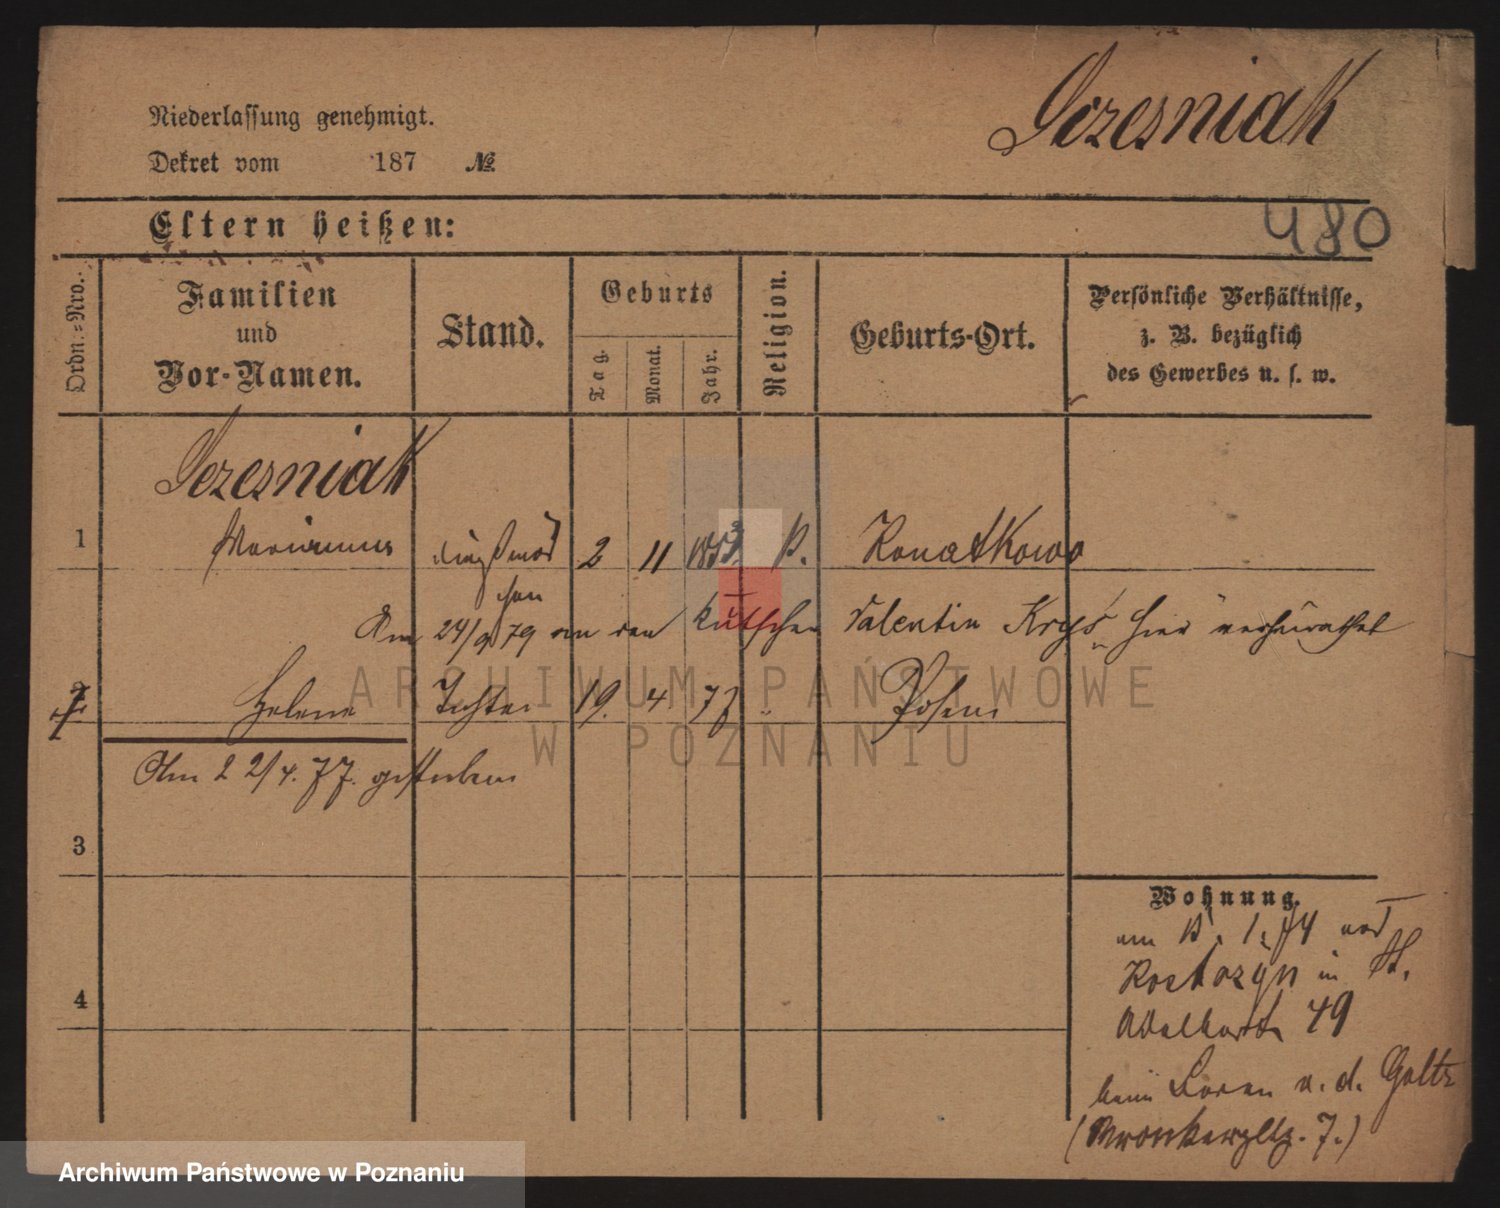 Niederlassung genehmigt.
Jezesniak
Dekret vom 187 №
Eltern heißen:
480
Ordn.=Nro.
Familien
und
Vor-Namen.
Stand.
Geburts
Tag.
Monat.
Jahr.
Religion.
Geburts-Ort.
Persönliche Verhältnisse,
z. B. bezüglich
des Gewerbes u. s. w.
Jezesniak
1 Marianna 2 11 1853 Konatkowo
Am 24/9 79 an den Kutscher Valentin Krys hier verheirathet
2 Helene Tochter 19. 4 77 " Posen
Am 22/4. 77. gestorben
3
4
Wohnung.
am 1. 74
Kostrzyn in St.
Adalbert 49
beim v. d. Goltz
(Wronkerpltz. 7.)
ARCHIWUM PAŃSTWOWE
W POZNANIU
Archiwum Państwowe w Poznaniu